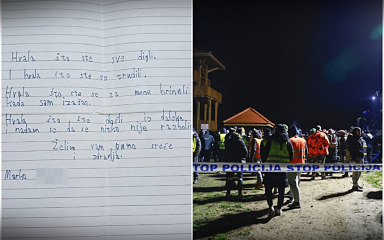 Hvala što ste sve digli.
I hvala što ste se trudili.
Hvala što ste se za mene brinuli
kada sam izašao.
Hvala što što došli iz daleka
i nadam se da se nitko nije razbolio
Želim vam puno sreće
i zdravlja.
Marko
STOP POLICIJA STOP POLICIJA